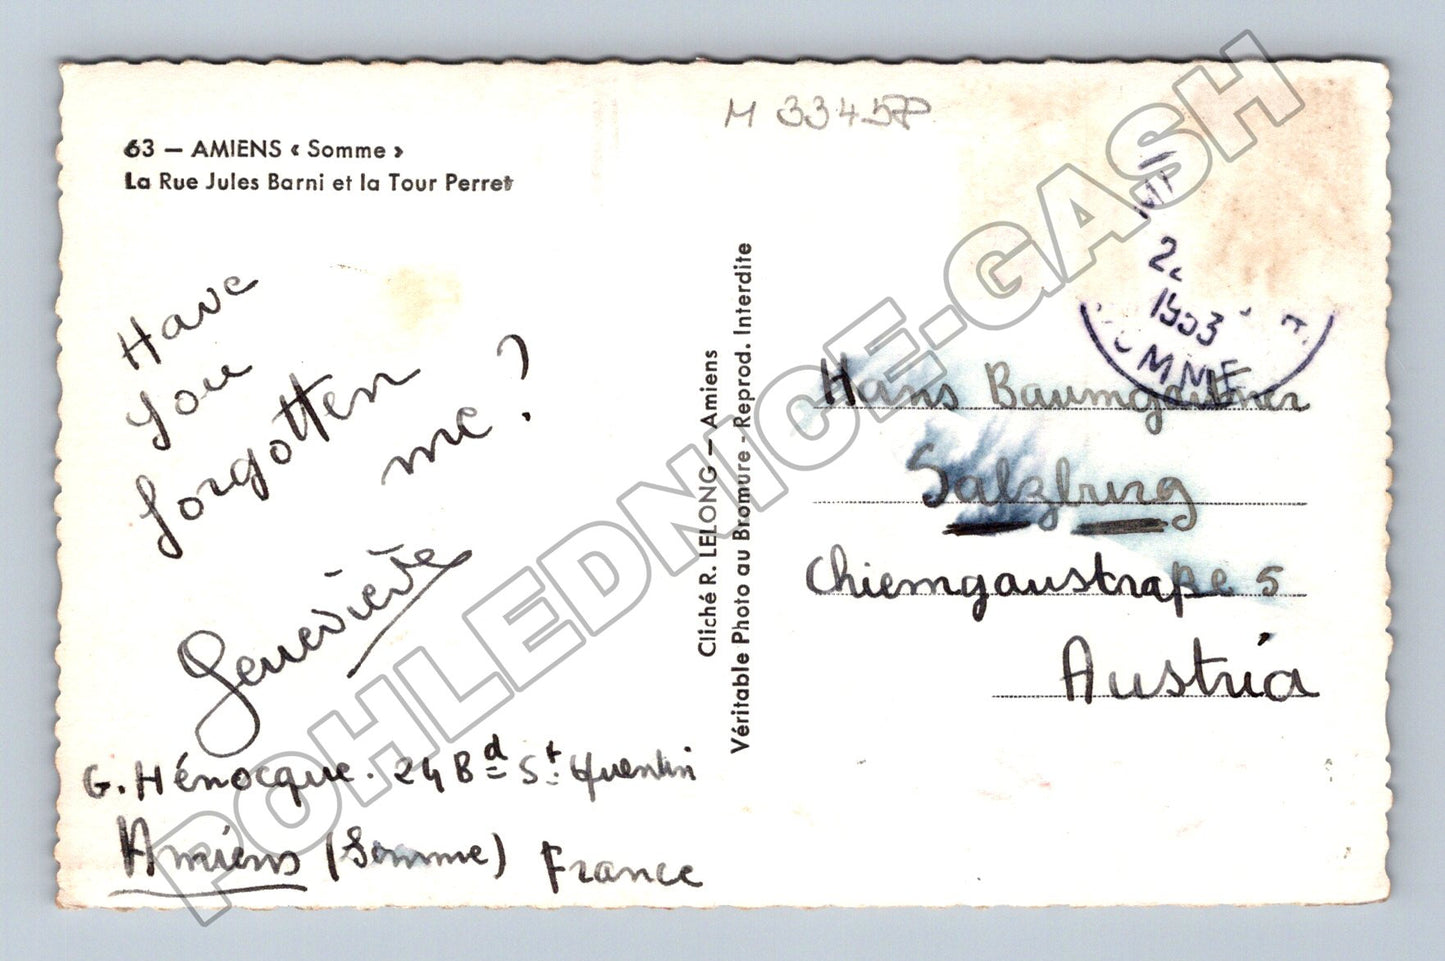 M 33457P
63 — AMIENS « Somme »
La Rue Jules Barni et la Tour Perret
Have
you
forgotten
me?
Geneviève
G. Hénocque. 24 Bd St Quentin
Amiens (Somme) France
Cliché R. LELONG — Amiens
Véritable Photo au Bromure - Reprod. Interdite
1953
SOMME
Hans Baumgartner
Salzburg
Chiemgaustraße 5
Austria
POHLEDNICE-GASH